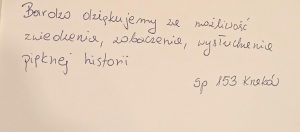 Bardzo dziękujemy za możliwość
zwiedzenia, zobaczenia, wysłuchania
pięknej historii
SP 153 Kraków